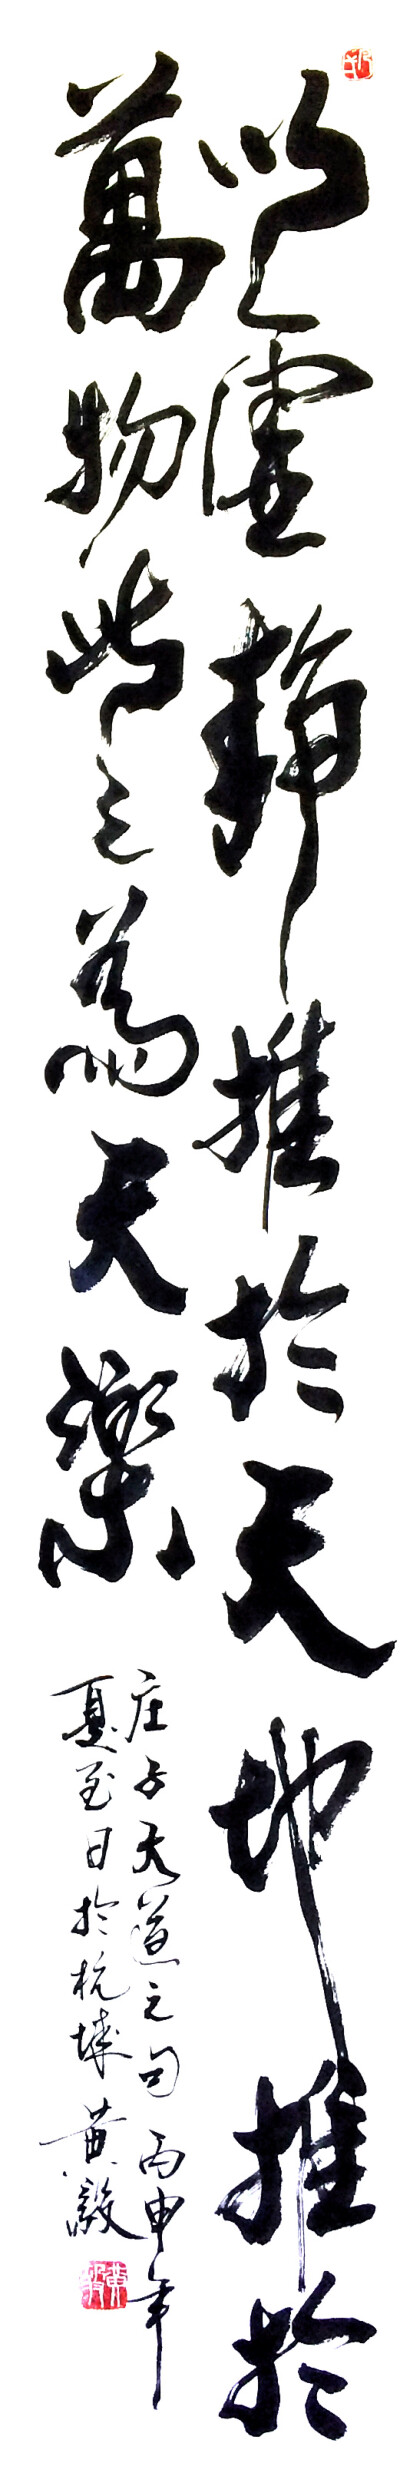 以虚静推於天地推於
萬物此之為天樂
庄子天道之句丙申年
夏至日於杭城黄毅